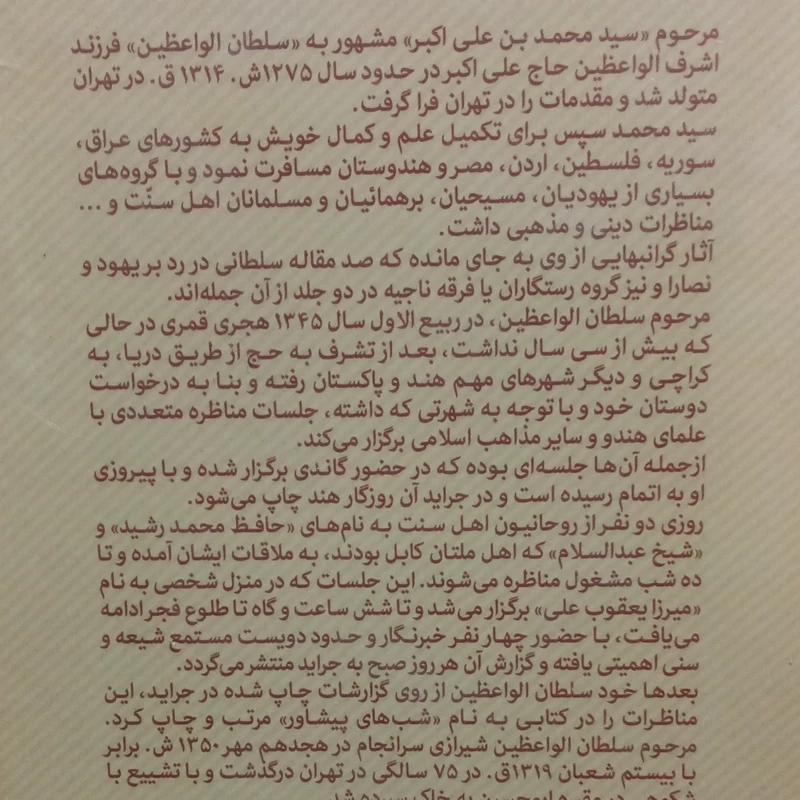 مرحوم «سید محمد بن علی اکبر» مشهور به «سلطان الواعظین» فرزند
اشرف الواعظین حاج علی اکبر در حدود سال ۱۲۷۵ش. ۱۳۱۴ ق. در تهران
متولد شد و مقدمات را در تهران فرا گرفت.
سید محمد سپس برای تکمیل علم و کمال خویش به کشورهای عراق،
سوریه، فلسطین، اردن، مصر و هندوستان مسافرت نمود و با گروه‌های
بسیاری از یهودیان، مسیحیان، برهمائیان و مسلمانان اهل سنّت و ...
مناظرات دینی و مذهبی داشت.
آثار گرانبهایی از وی به جای مانده که صد مقاله سلطانی در رد بر یهود و
نصارا و نیز گروه رستگاران یا فرقه ناجیه در دو جلد از آن جمله‌اند.
مرحوم سلطان الواعظین، در ربیع الاول سال ۱۳۴۵ هجری قمری در حالی
که بیش از سی سال نداشت، بعد از تشرف به حج از طریق دریا، به
کراچی و دیگر شهرهای مهم هند و پاکستان رفته و بنا به درخواست
دوستان خود و با توجه به شهرتی که داشته، جلسات مناظره متعددی با
علمای هندو و سایر مذاهب اسلامی برگزار می‌کند.
ازجمله آن‌ها جلسه‌ای بوده که در حضور گاندی برگزار شده و با پیروزی
او به اتمام رسیده است و در جراید آن روزگار هند چاپ می‌شود.
روزی دو نفر از روحانیون اهل سنت به نام‌های «حافظ محمد رشید» و
«شیخ عبدالسلام» که اهل ملتان کابل بودند، به ملاقات ایشان آمده و تا
ده شب مشغول مناظره می‌شوند. این جلسات که در منزل شخصی به نام
«میرزا یعقوب علی» برگزار می‌شد و تا شش ساعت و گاه تا طلوع فجر ادامه
می‌یافت، با حضور چهار نفر خبرنگار و حدود دویست مستمع شیعه و
سنی اهمیتی یافته و گزارش آن هر روز صبح به جراید منتشر می‌گردد.
بعدها خود سلطان الواعظین از روی گزارشات چاپ شده در جراید، این
مناظرات را در کتابی به نام «شب‌های پیشاور» مرتب و چاپ کرد.
مرحوم سلطان الواعظین شیرازی سرانجام در هجدهم مهر ۱۳۵۰ ش. برابر
با بیستم شعبان ۱۳۱۹ق. در ۷۵ سالگی در تهران درگذشت و با تشییع با